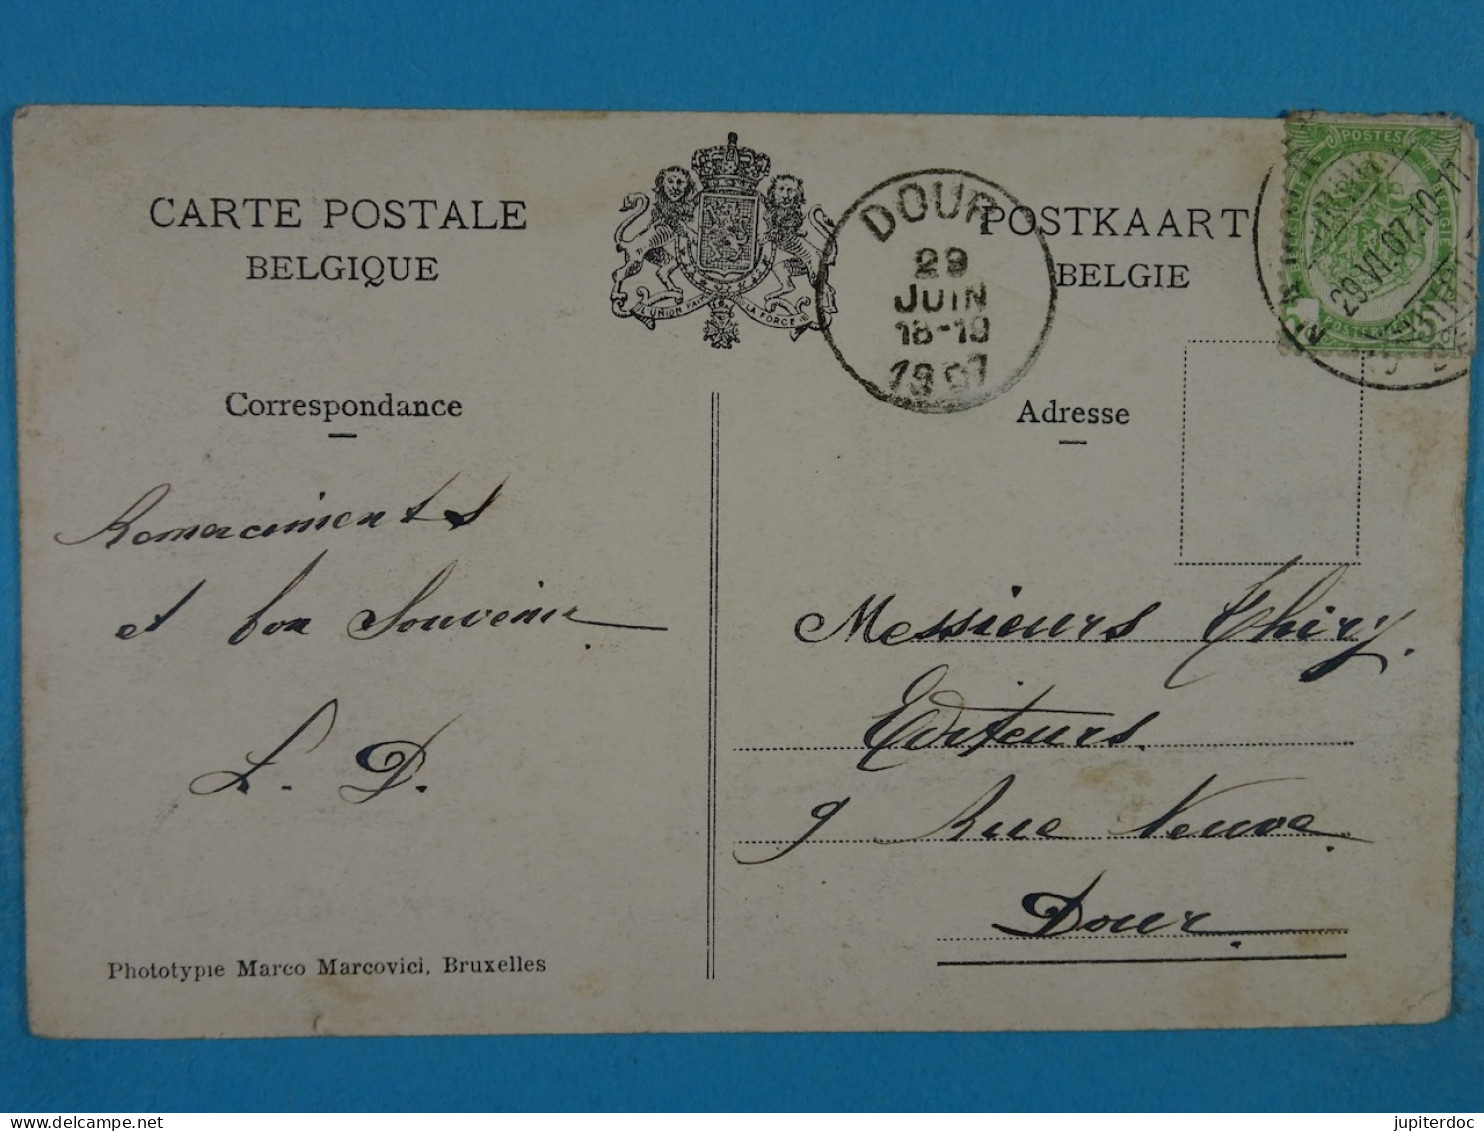 CARTE POSTALE
BELGIQUE
POSTKAART
BELGIE
L'UNION FAIT LA FORCE
DOUR
29
JUIN
18-19
1907
POSTES
29.VI.07.10-11
Correspondance
Adresse
Remerciments
et bon Souvenir
L. D.
Messieurs Thiry.
Editeurs.
9 Rue Neuve.
Dour.
Phototypie Marco Marcovici, Bruxelles
delcampe.net
jupiterdoc